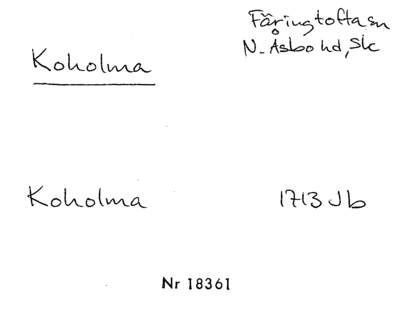 Färingtofta sn
Koholma
N. Åsbo hd, Sk
Koholma 1713 Jb
Nr 18361